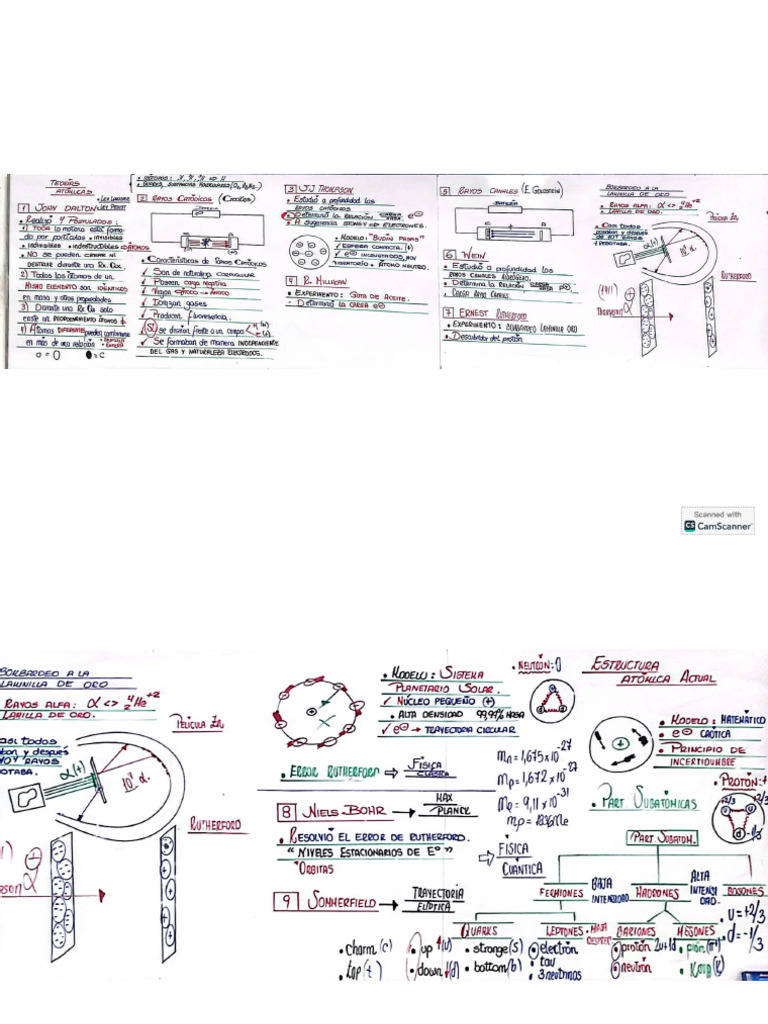 TEORÍAS
ATÓMICAS
• Ley Lavoisier
• Ley Proust
1 JOHN DALTON
• Realizó 4 Postulados:
1) TODA la materia está forma
do por partículas • invisibles
• indivisibles • indestructibles
ÁTOMOS
• NO se pueden CREAR NI
DESTRUIR durante una Rx. Qx.
2) Todos los átomos de un
MISMO ELEMENTO son IDÉNTICOS
en masa y otras propiedades.
3) Durante una Rx Qx solo
existe un REORDENAMIENTO
4) Átomos DIFERENTES pueden combinarse
en más de una relación
2 RAYOS CATÓDICOS (Crookes)
• Características de Rayos Catódicos
✓ Son de naturaleza CORPUSCULAR
✓ Poseen carga negativa
✓ Viajan CÁTODO → ÁNODO
✓ Ionizan gases
✓ Producen fluorescencia.
✓ (SI) se desvían frente a un campo
✓ Se formaban de manera INDEPENDIENTE
DEL GAS Y NATURALEZA ELECTRODOS.
3 J.J THOMPSON
• Estudió a profundidad los
RAYOS CATÓDICOS
• Determinó la RELACIÓN CARGA/MASA e⊖
• A sugerencia STONEY => ELECTRONES.
• MODELO: "BUDÍN PASAS"
✓ ESFERA COMPACTA (+)
✓ e⊖ INCRUSTADOS, MOV
VIBRATORIO • ÁTOMO NEUTRO.
4 R. MILLIKAN
• EXPERIMENTO: GOTA DE ACEITE.
- Determinó la CARGA e⊖
5 RAYOS CANALES (E. GOLDSTEIN)
6 WEIN
• Estudió a profundidad los
RAYOS CANALES HIDRÓGENO.
• Determina la RELACIÓN CARGA/MASA
7 ERNEST RUTHERFORD
• EXPERIMENTO: BOMBARDEO LAMINILLA ORO
• Descubridor del protón
BOMBARDEO A LA
LAMINILLA DE ORO
• RAYOS ALFA: α <> 4 2 He +2
• LAMILLA DE ORO.
• CASI TODOS
PELÍCULA Zn
α(+)
10⁴ α.
RUTHERFORD
Thompson
Scanned with
CS CamScanner
BOMBARDEO A LA
LAMINILLA DE ORO
RAYOS ALFA: α <> 4 2 He +2
LAMILLA DE ORO.
PELÍCULA Zn
ASI TODOS
y después
RAYOS
α(+)
10⁴ α.
RUTHERFORD
α
• MODELO: SISTEMA
PLANETARIO SOLAR.
✓ NÚCLEO PEQUEÑO (+)
• ALTA DENSIDAD 99,99% MASA
✓ e⊖ → TRAYECTORIA CIRCULAR
• ERROR RUTHERFORD => FÍSICA
CLÁSICA
8 NIELS-BOHR → MAX
PLANCK
• RESOLVIÓ EL ERROR DE RUTHERFORD.
"NIVELES ESTACIONARIOS DE E°"
"ORBITAS
=> FÍSICA
CUÁNTICA
9 SOMMERFIELD → TRAYECTORIA
ELÍPTICA
• NEUTRÓN: 0
mn = 1,675 x10⁻²⁷
mp = 1,672 x10⁻²⁷
me = 9,11 x10⁻³¹
mp = 1836me
ESTRUCTURA
ATÓMICA ACTUAL
• MODELO: MATEMÁTICO
• e⊖ CAÓTICA
• PRINCIPIO DE
INCERTIDUMBRE
• PROTÓN: +
• PART SUBATÓMICAS
PART. SUBATÓM.
FERMIONES BAJA
INTENSIDAD
HADRONES ALTA
INTENSI
DAD
BOSONES
QUARKS
LEPTONES
BARIONES
MESONES
• u = +2/3
• d = -1/3
• charm (c)
• top (t)
• up (u)
• down (d)
• strange (s)
• bottom (b)
• electrón
• tau
• 3 neutrinos
• protón 2u+1d
• neutrón
• pión (π)
• Kaón (K)